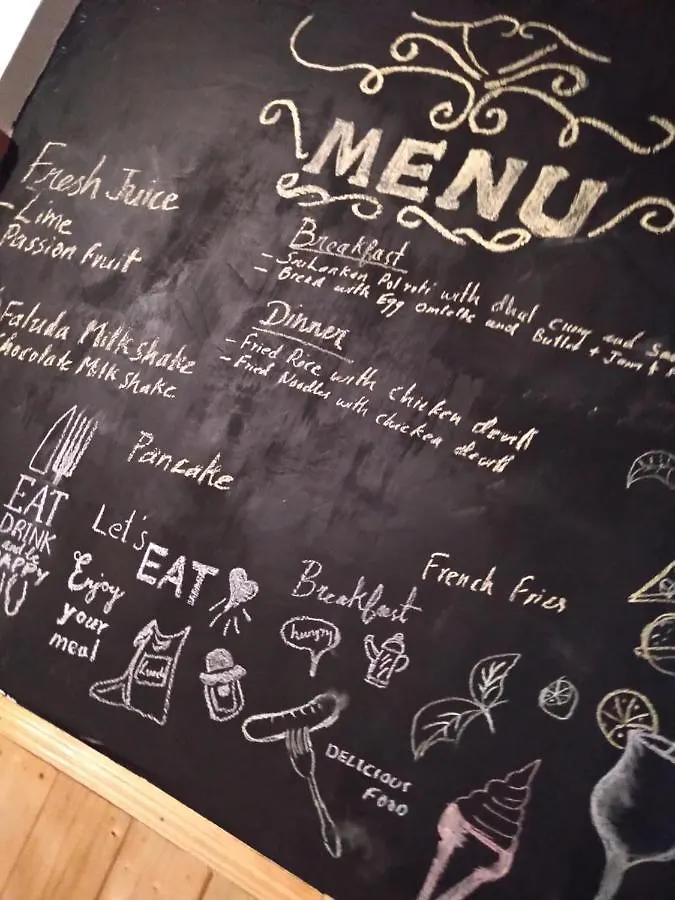 MENU
Fresh Juice
- Lime
Passion Fruit
Faluda Milkshake
Chocolate Milk Shake
Breakfast
- Srilankan Pol roti with dhal curry and
- Bread with Egg omlette and Butter + Jam +
Dinner
- Fried Rice with chicken devill
- Fried Noodles with chicken devill
Pancake
EAT
DRINK
and be
HAPPY
Let's
EAT
Enjoy
your
meal
Lunch
Breakfast
hungry
French Fries
DELICIOUS
FOOD